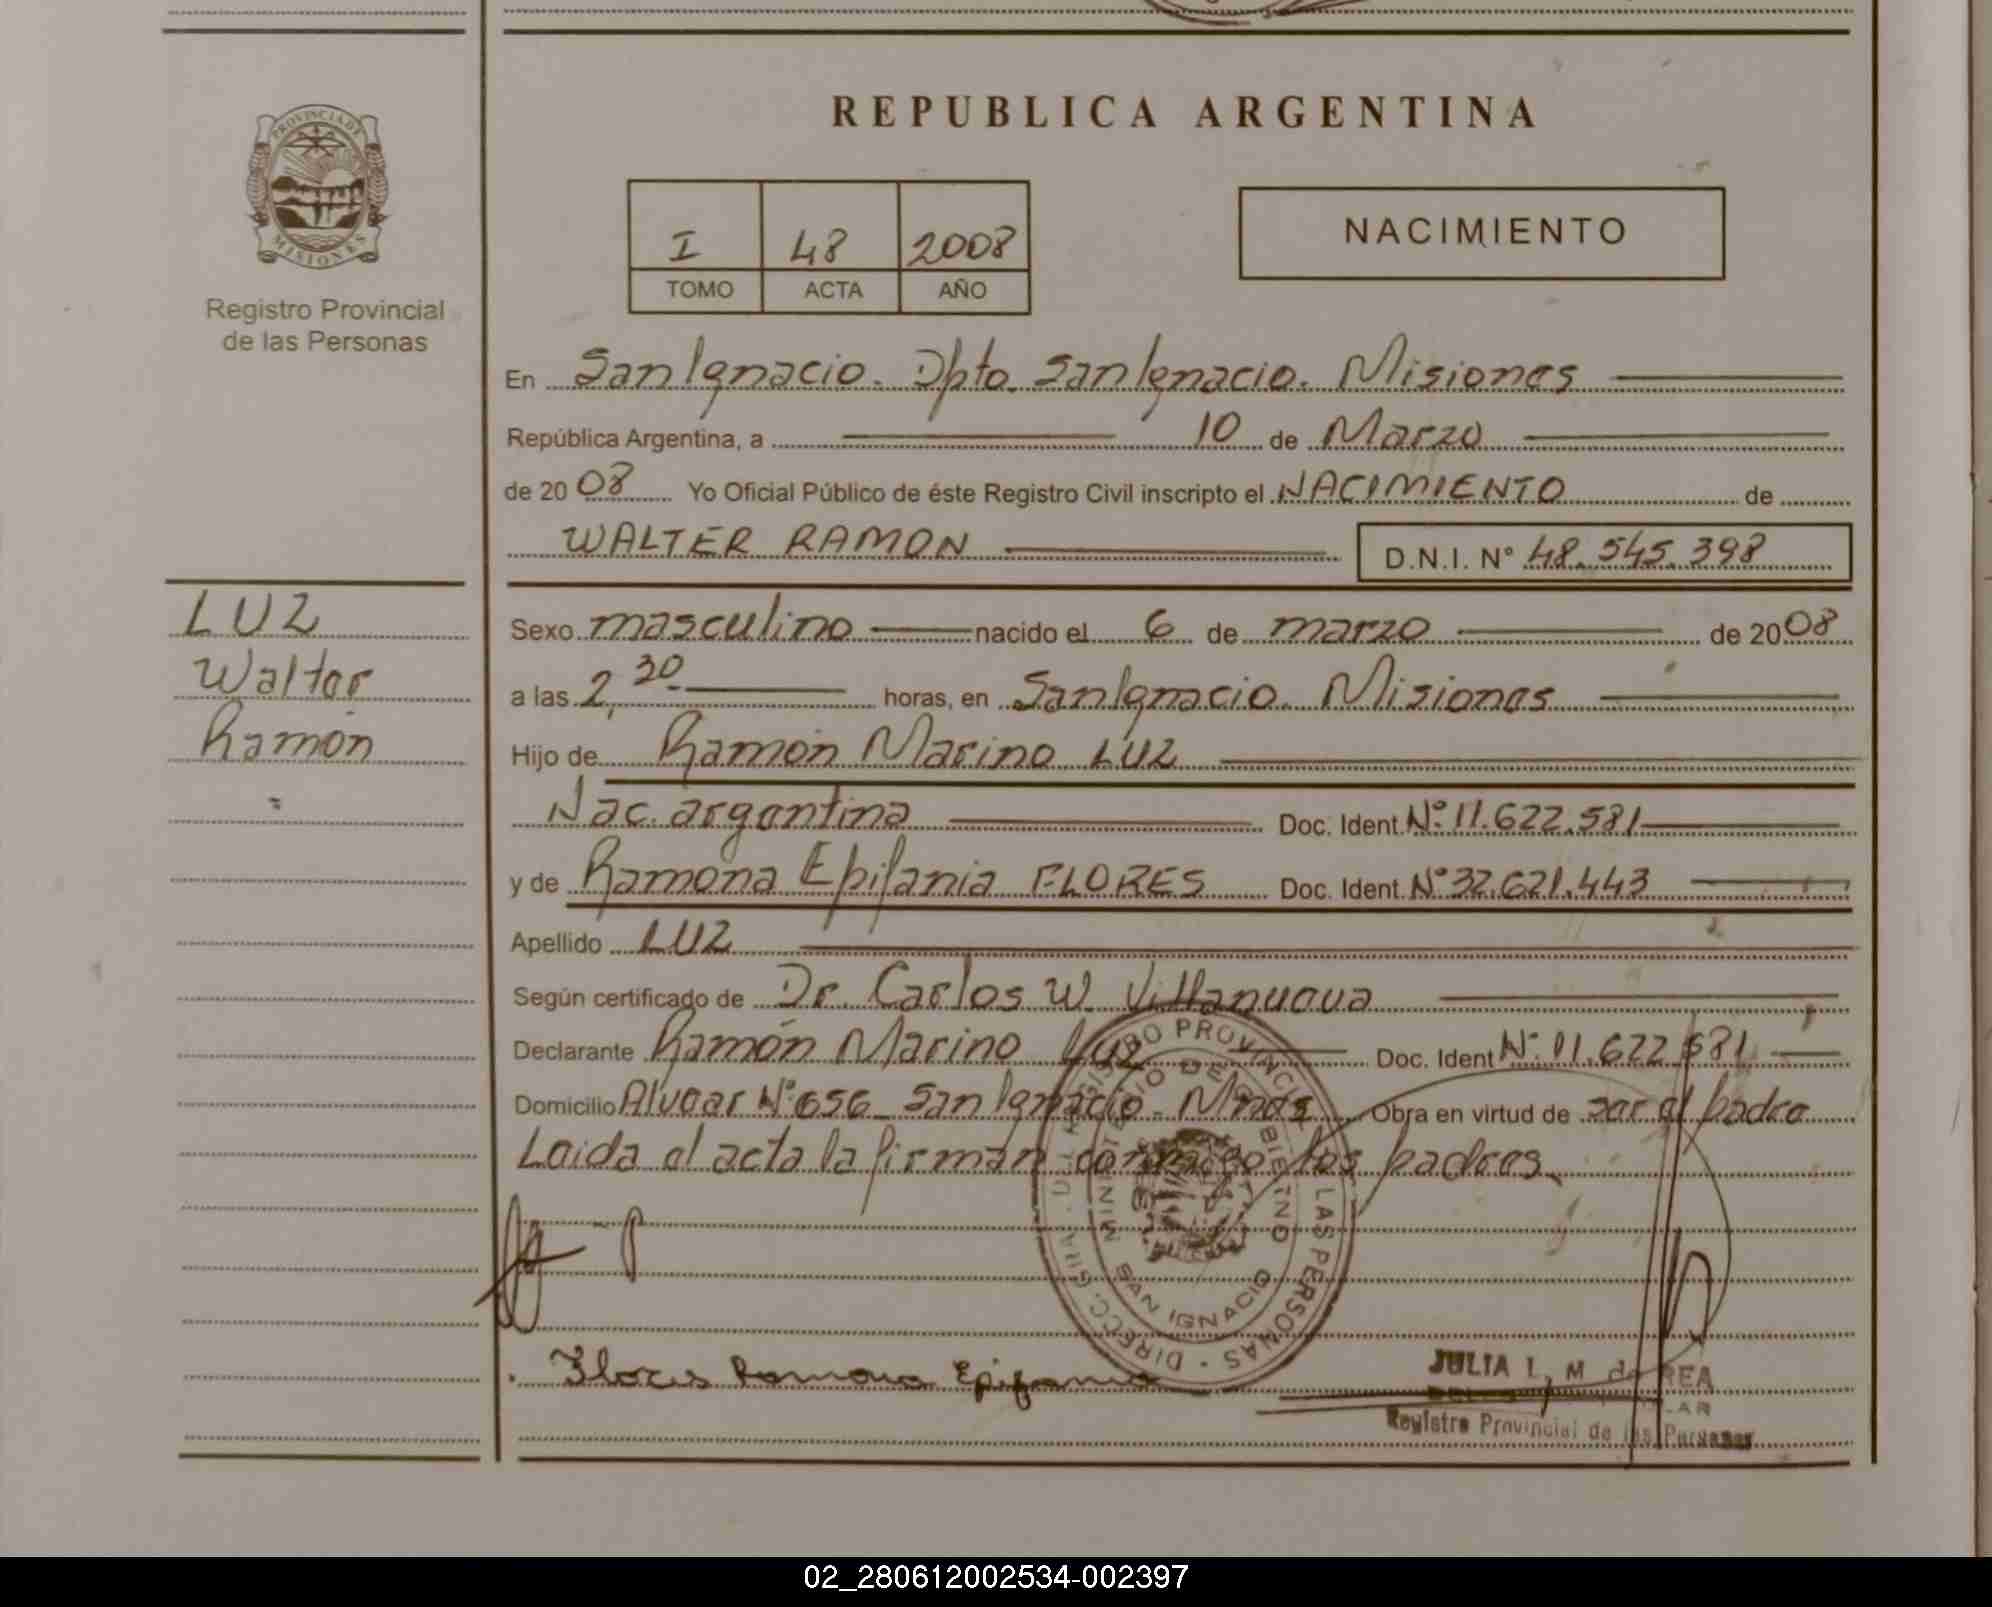 REPUBLICA ARGENTINA
PROVINCIA DE
MISIONES
Registro Provincial
de las Personas
I 48 2008
TOMO ACTA AÑO
NACIMIENTO
En San Ignacio. Dpto. San Ignacio. Misiones
República Argentina, a 10 de Marzo
de 2008 Yo Oficial Público de éste Registro Civil inscripto el NACIMIENTO de
WALTER RAMON D.N.I. Nº 48.545.398
LUZ
Walter
Ramón
Sexo masculino nacido el 6 de marzo de 2008
a las 2,30 horas, en San Ignacio. Misiones
Hijo de Ramón Marino LUZ
Nac. argentina Doc. Ident. Nº 11.622.581
y de Ramona Epifania FLORES Doc. Ident. Nº 32.621.443
Apellido LUZ
Según certificado de Dr. Carlos W. Villanueva
Declarante Ramón Marino Luz Doc. Ident. Nº 11.622.581
Domicilio Alvear Nº 656 San Ignacio - Mnes Obra en virtud de ser el padre
Leida el acta la firman conmigo los padres
REGISTRO PROVINCIAL DE LAS PERSONAS · DIRECC. GRAL. DEL
MINISTERIO DE GOBIERNO
SAN IGNACIO
Flores Ramona Epifania
JULIA I. M de REA
Registro Provincial de las Personas
02_280612002534-002397